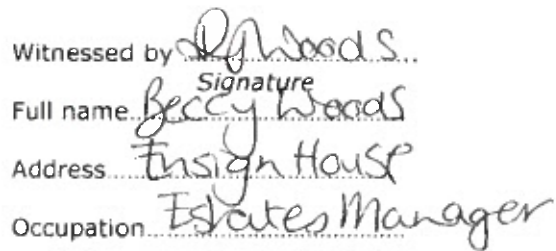 Witnessed by Woods
Signature
Full name Beccy Woods
Address Ensign House
Occupation Estates Manager